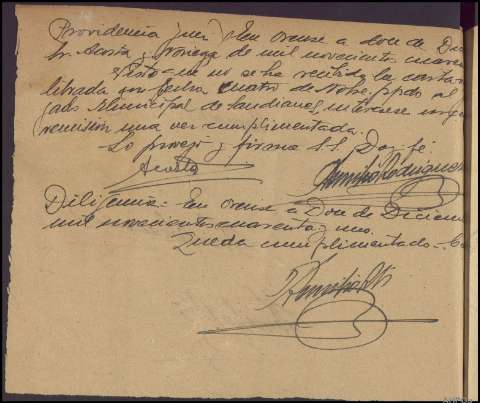 Providencia Juez) En Orense a doce de Dic
Sr. Acosta y Noriega de mil novecientos cuaren
Visto que no se ha recibido la carta-
librada con fecha cuatro de Novbre. ppdo al
gado Municipal de Sandianes, interese
remisión una vez cumplimentada.
Lo proveyó y firma S.S. Doy fé:
Acosta
Rodriguez
Diligencia: En Orense a Doce de Diciem
mil novecientos cuarenta y uno.
Queda cumplimentado.